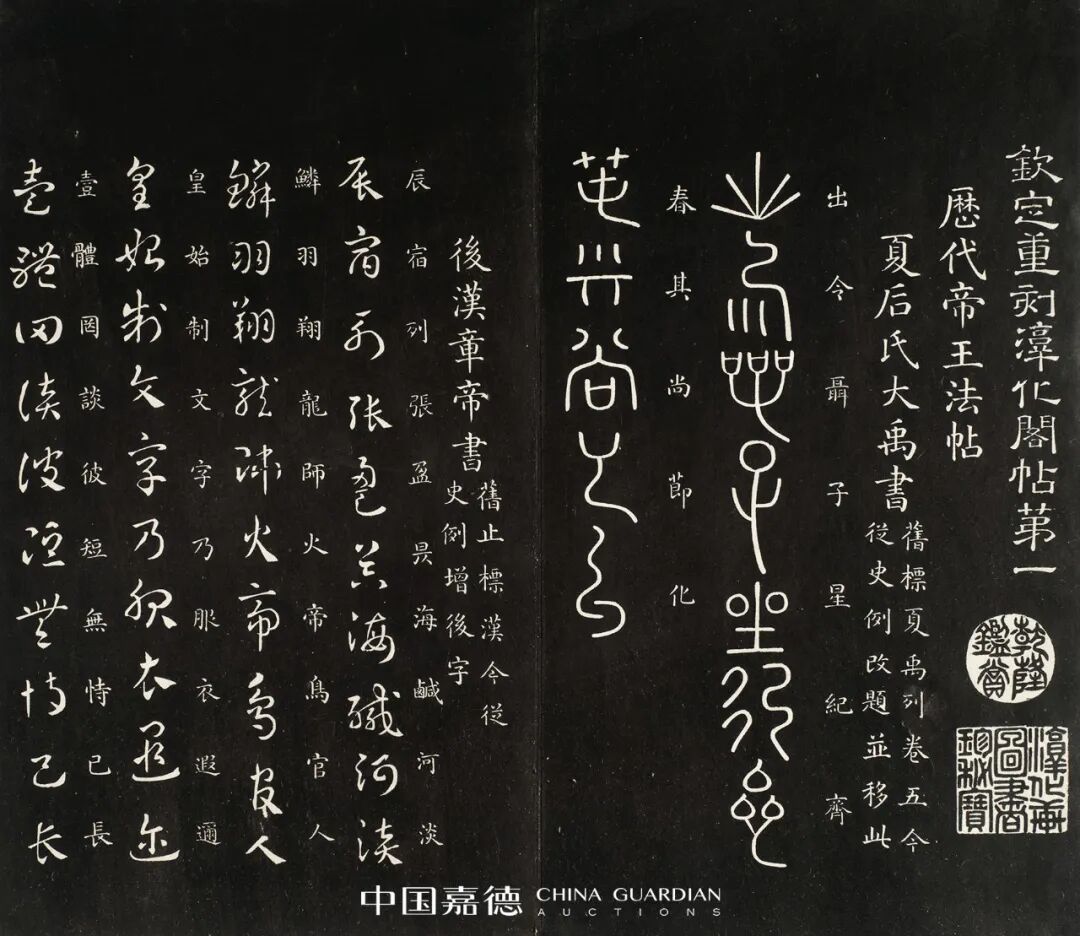 欽定重刻淳化閣帖第一
乾隆鑑賞
淳化軒圖書珍秘寶
歷代帝王法帖
夏后氏大禹書
舊標夏禹列卷五今
從史例改題並移此
出令聶子星紀齊
出令聶子星紀齊
春其尚節化
春其尚節化
後漢章帝書
舊止標漢今從
史例增後字
辰宿列張盈昃海鹹河淡
辰宿列張盈昃海鹹河淡
鱗羽翔龍師火帝鳥官人
鱗羽翔龍師火帝鳥官人
皇始制文字乃服衣遐邇
皇始制文字乃服衣遐邇
壹體罔談彼短無恃己長
壹體罔談彼短無恃己長
中国嘉德 CHINA GUARDIAN
AUCTIONS